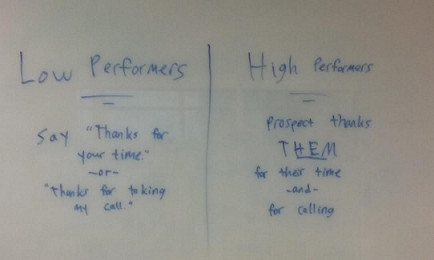 Low Performers
Say "Thanks for
your time."
-or-
"Thanks for taking
my call."
High Performers
Prospect thanks
THEM
for their time
-and-
for calling